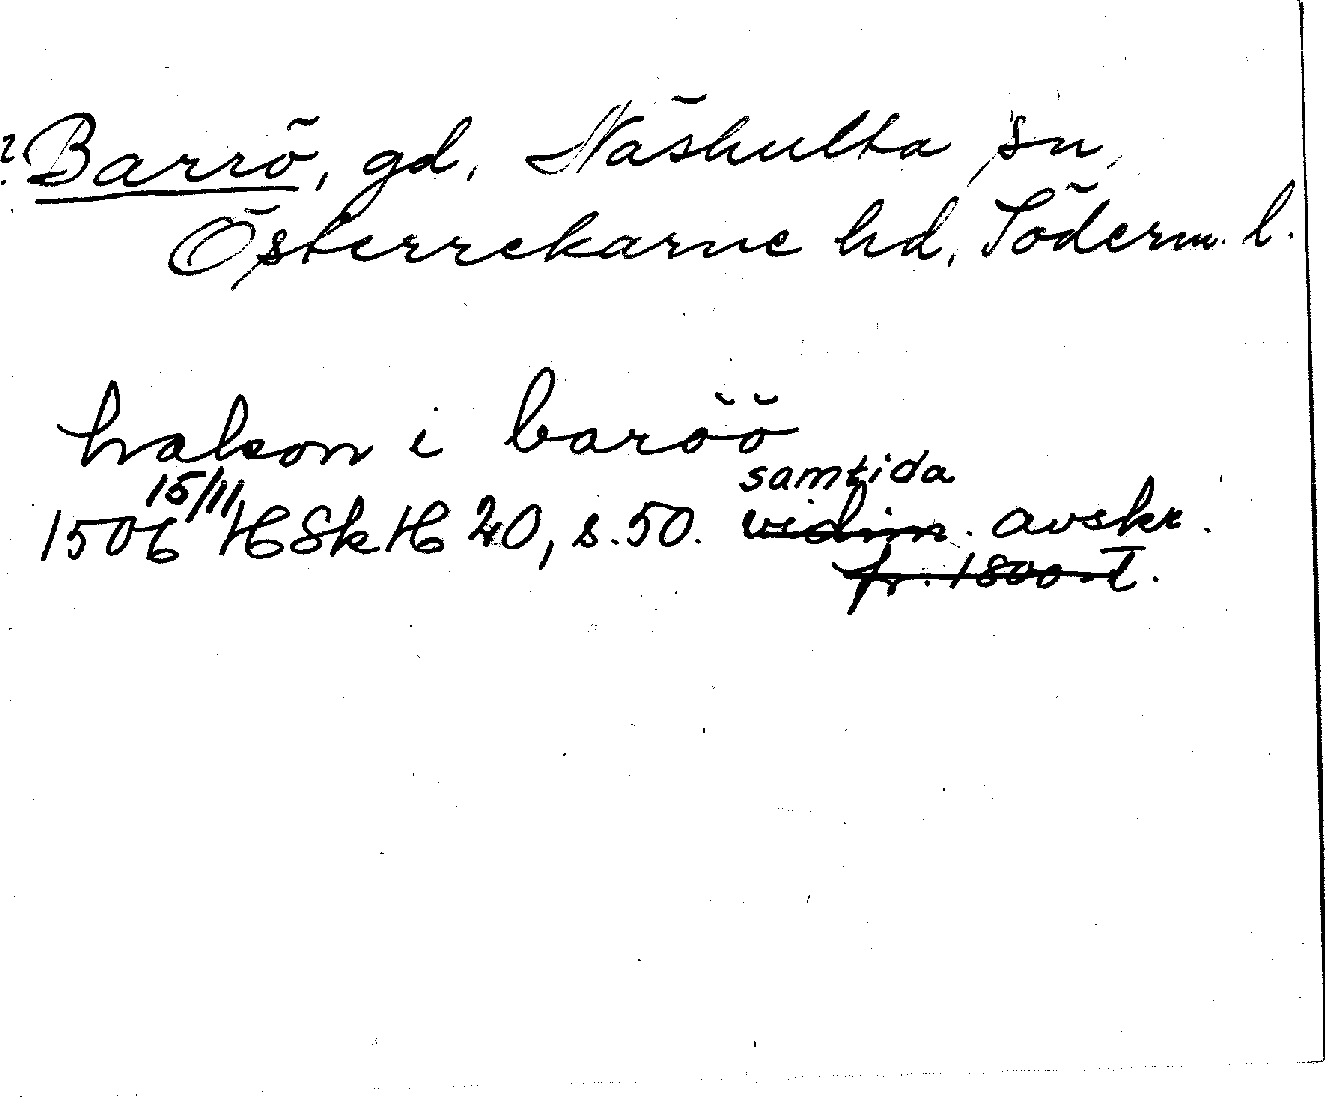 ? Barrö, gd, Näshulta sn,
Österrekarne hd, Söderm. l.
hakon i baröö
samtida
1506 15/11 HSkH 20, s. 50. vidim. avskr.
fr. 1800-t.